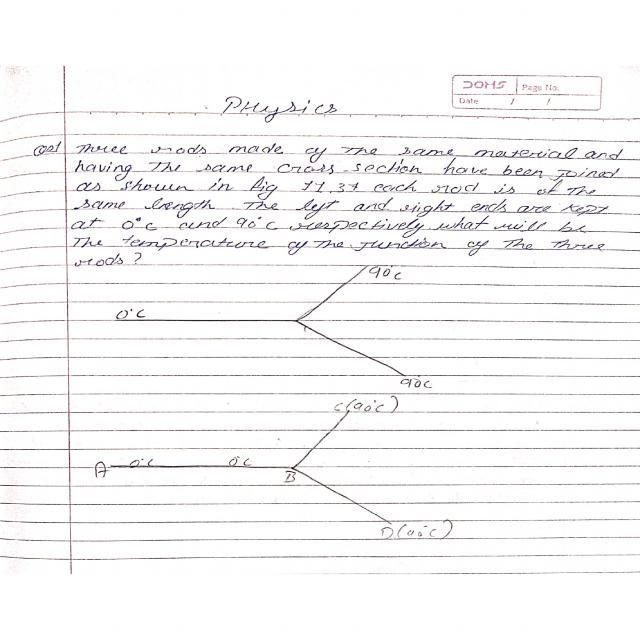 PHysics
DOMS Page No.
Date / /
Qe1 Three rods made of The same material and
having The same cross-section have been joined
as shown in fig 11.37 each rod is of the
same length The left and right ends are kept
at 0°c and 90°c respectively what will be
The temperature of the junction of The three
rods?
90c
0°c
90c
C(90°c)
A 0°c 0c
B
D(90°c)